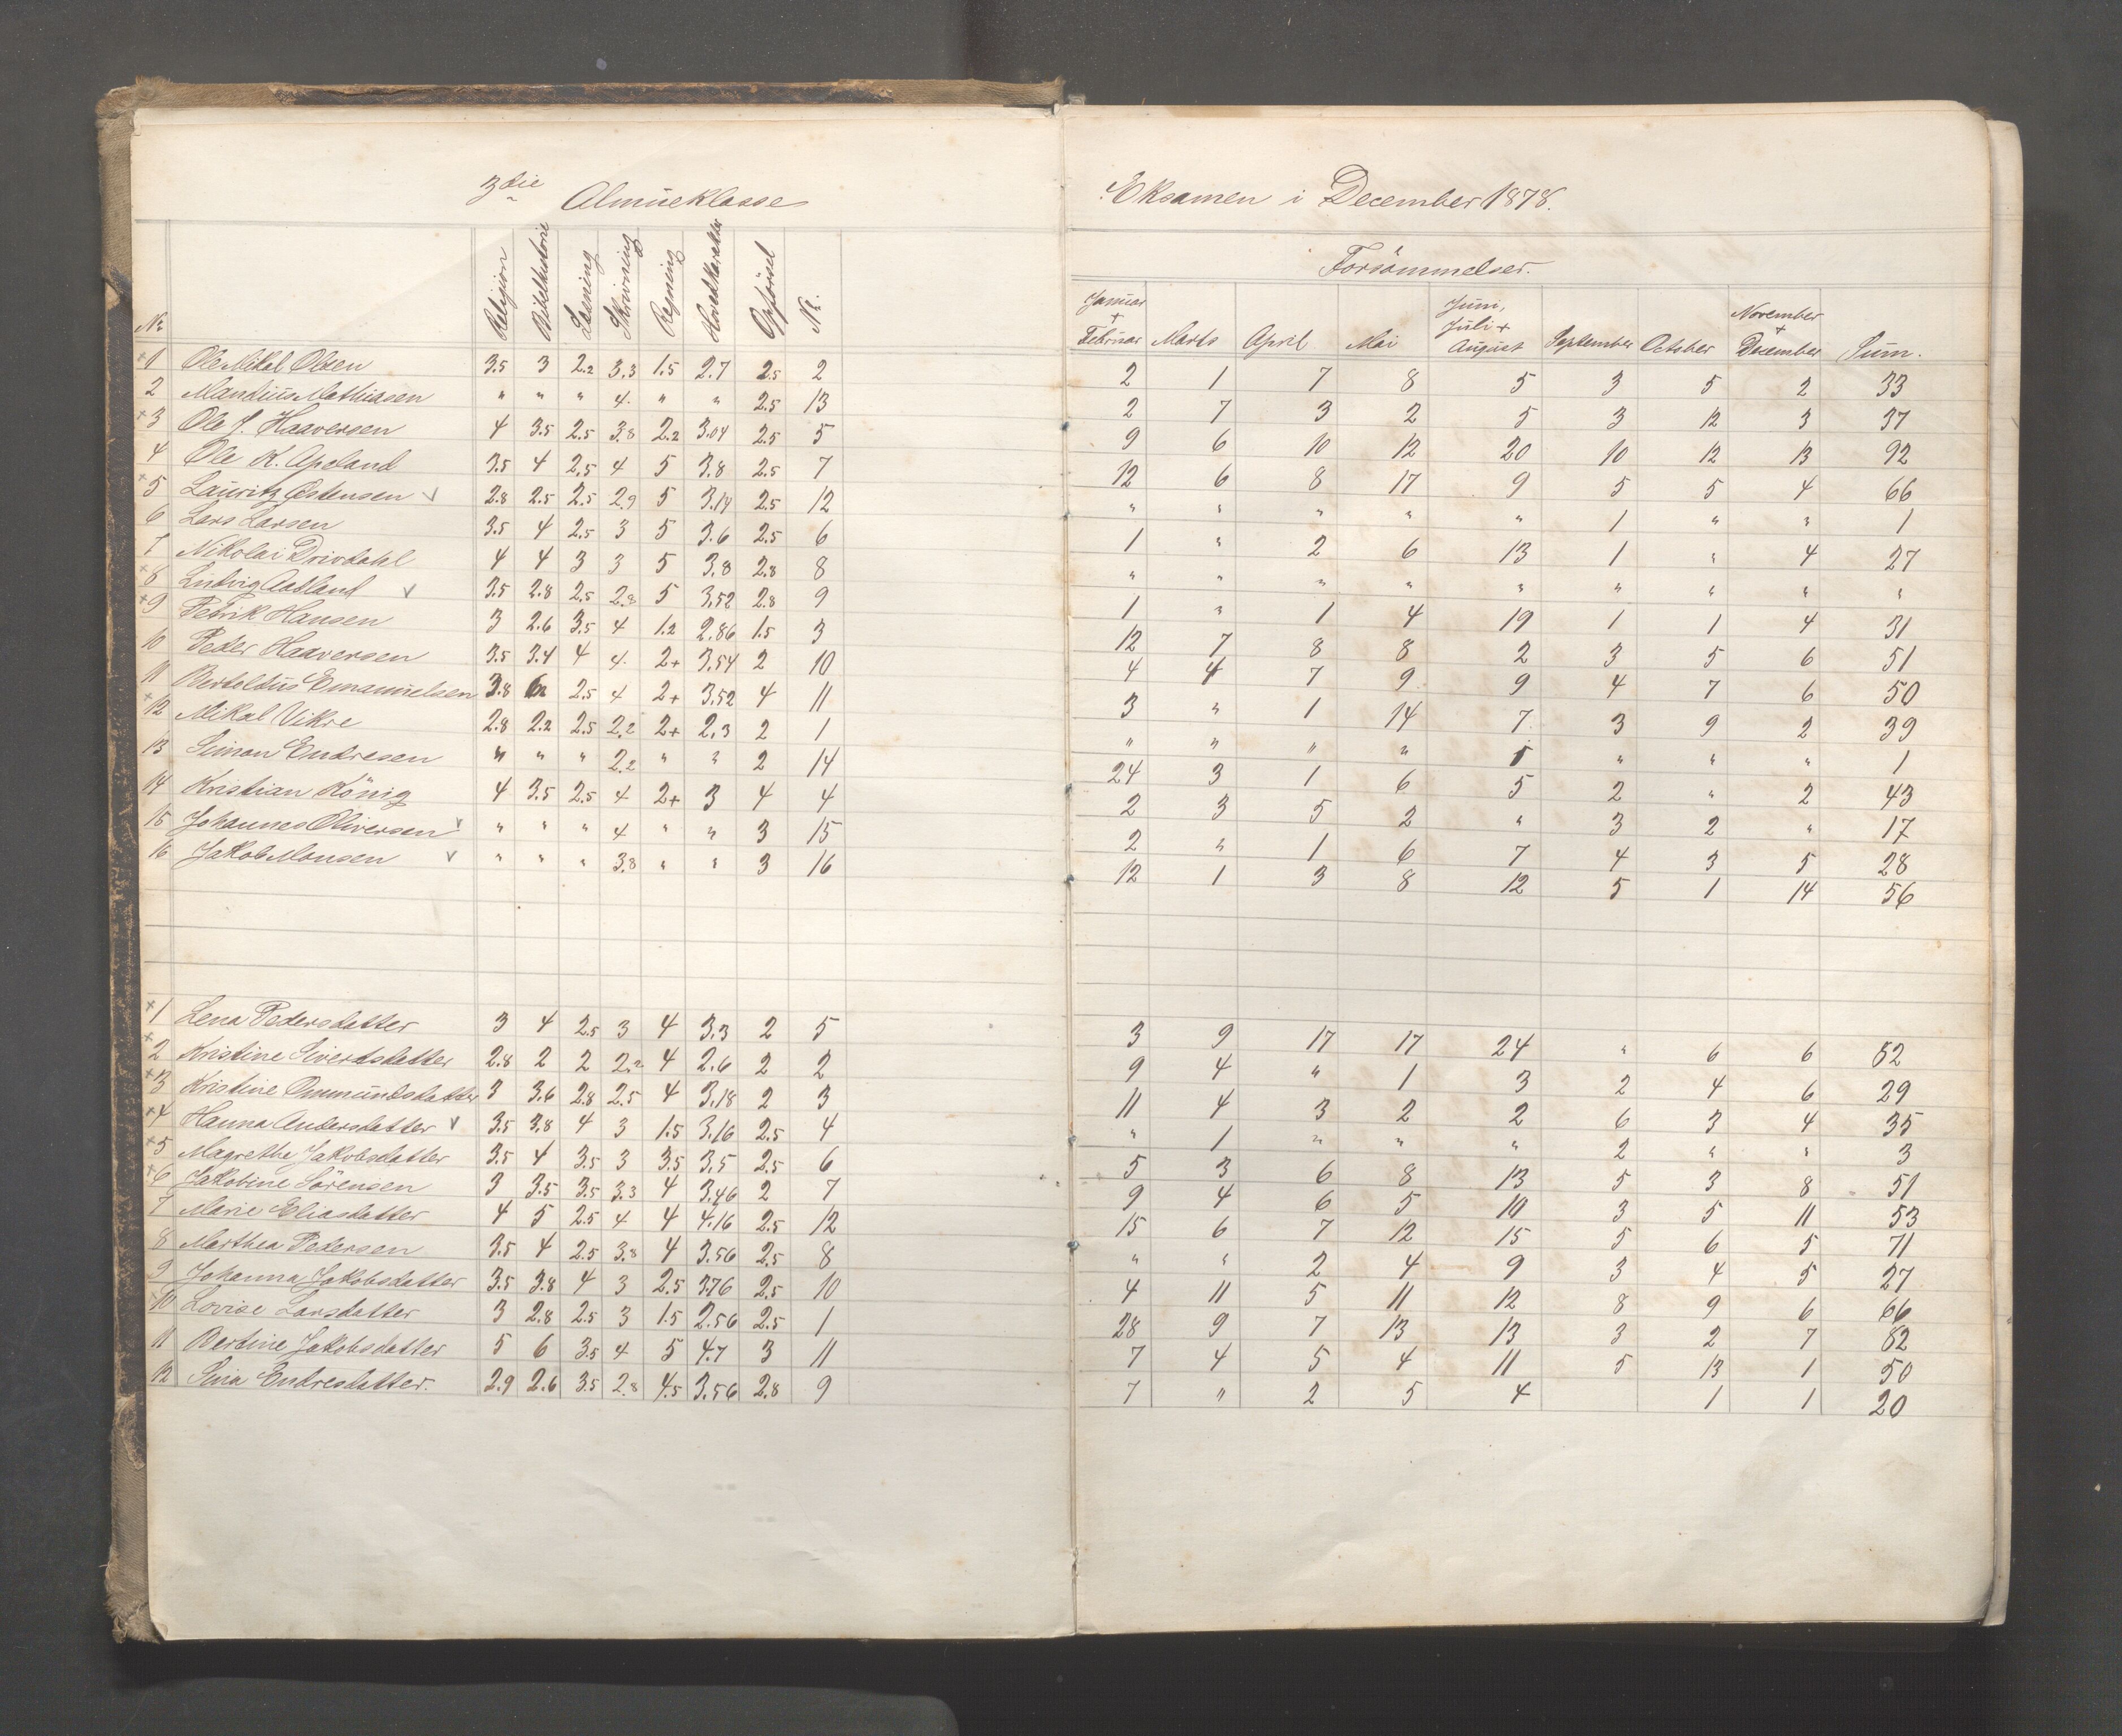 3die Almueklasse
Eksamen i December 1878.
Forsömmelser.
Nr. Religion Bibelhistorie Læsning Skrivning Regning Hovedkarakter Opförsel Nr.
Januar + Februar Marts April Mai Juni, Juli + August September October November + December Sum.
×1 Ole Mikal Olsen 3.5 3 2.2 3.3 1.5 2.7 2.5 2
2 Mandius Mathiasen " " " 4. " " 2.5 13
×3 Ole J. Haaversen 4 3.5 2.5 3.8 2.2 3.04 2.5 5
4 Ole K. Apeland 3.5 4 2.5 4 5 3.8 2.5 7
×5 Lauritz Østensen v 2.8 2.5 2.5 2.9 5 3.14 2.5 12
6 Lars Larsen 3.5 4 2.5 3 5 3.6 2.5 6
7 Nikolai Drivdahl 4 4 3 3 5 3.8 2.8 8
×8 Ludvig Aadland v 3.5 2.8 2.5 2.8 5 3.52 2.8 9
×9 Petrik Hansen 3 2.6 3.5 4 1.2 2.86 1.5 3
10 Peder Haaversen 3.5 3.4 4 4. 2+ 3.54 2 10
11 Bertoldus Emanuelsen 3.8 6 2.5 4 2+ 3.52 4 11
×12 Mikal Vikre 2.8 2.2 2.5 2.2 2+ 2.3 2 1
13 Simon Endresen " " " 2.2 " " 2 14
14 Kristian König 4 3.5 2.5 4 2+ 3 4 4
15 Johannes Oliversen v " " " 4 " " 3 15
16 Jakob Monsen v " " " 3.8 " " 3 16
×1 Lena Pedersdatter 3 4 2.5 3 4 3.3 2 5
×2 Kristine Sivertsdatter 2.8 2 2 2.2 4 2.6 2 2
×3 Kristine Ommundsdatter 3 3.6 2.8 2.5 4 3.18 2 3
×4 Hanna Andersdatter v 3.5 3.8 4 3 1.5 3.16 2.5 4
×5 Magrethe Jakobsdatter 3.5 4 3.5 3 3.5 3.5 2.5 6
×6 Jakobine Sörensen 3 3.5 3.5 3.3 4 3.46 2 7
7 Marie Eliasdatter 4 5 2.5 4 4 4.16 2.5 12
8 Marthea Pedersen 3.5 4 2.5 3.8 4 3.56 2.5 8
9 Johanna Jakobsdatter 3.5 3.8 4 3 2.5 3.76 2.5 10
×10 Lovise Larsdatter 3 2.8 2.5 3 1.5 2.56 2.5 1
11 Bertine Jakobsdatter 5 6 3.5 4 5 4.7 3 11
12 Sina Endresdatter. 2.9 2.6 3.5 2.8 4.5 3.56 2.8 9
2 1 7 8 5 3 5 2 33
2 7 3 2 5 3 12 3 37
9 6 10 12 20 10 12 13 92
12 6 8 17 9 5 5 4 66
" " " " " 1 " " 1
1 " 2 6 13 1 " 4 27
" " " " " " " " "
1 " 1 4 19 1 1 4 31
12 7 8 8 2 3 5 6 51
4 4 7 9 9 4 7 6 50
3 " 1 14 7 3 9 2 39
" " " " 1 " " " 1
24 3 1 6 5 2 " 2 43
2 3 5 2 " 3 2 " 17
2 " 1 6 7 4 3 5 28
12 1 3 8 12 5 1 14 56
3 9 17 17 24 " 6 6 82
9 4 " 1 3 2 4 6 29
11 4 3 2 2 6 3 4 35
" 1 " " " 2 " " 3
5 3 6 8 13 5 3 8 51
9 4 6 5 10 3 5 11 53
15 6 7 12 15 5 6 5 71
" " 2 4 9 3 4 5 27
4 11 5 11 12 8 9 6 66
28 9 7 13 13 3 2 7 82
7 4 5 4 11 5 13 1 50
7 " 2 5 4 1 1 20